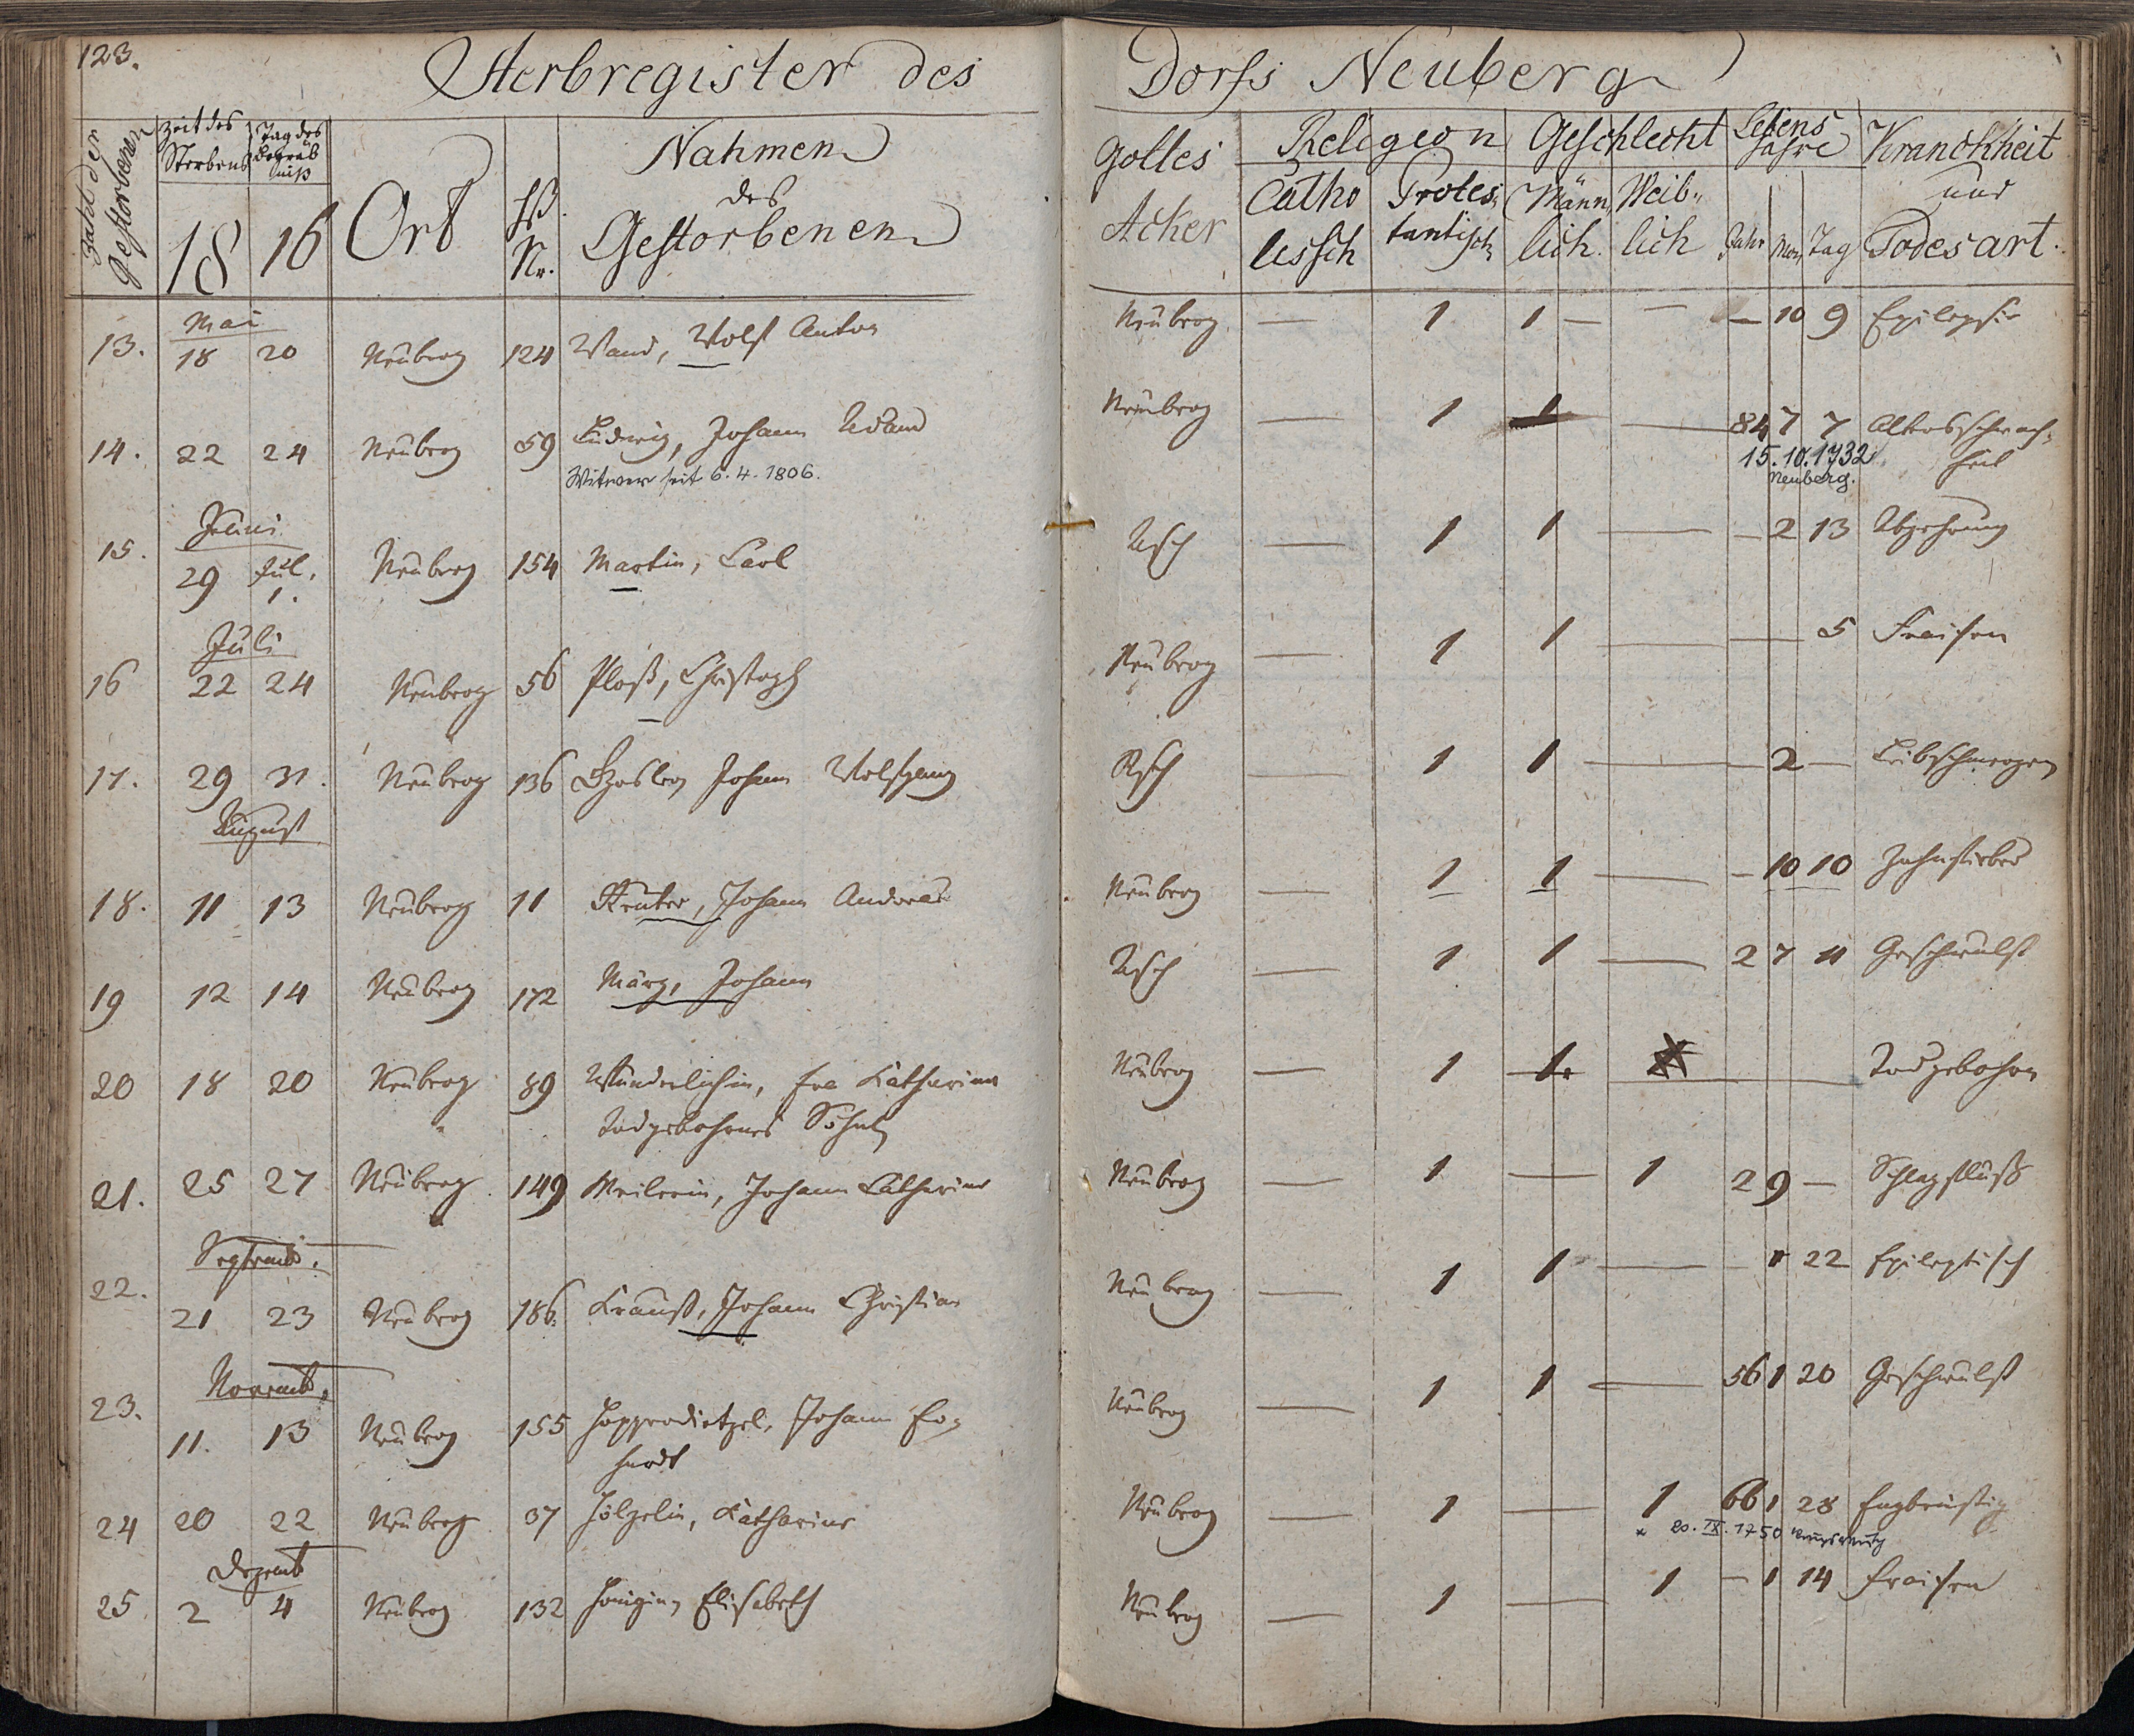 123.
Sterbregister des Dorfs Neuberg
Zahl der Gestorbenen
Zeit des Sterbens
Tag des Begräbniß
18 16
Ort
Hß. Nr.
Nahmen des Gestorbenen
Gottes Acker
Religion
Catholisch
Protestantisch
Geschlecht
Männlich
Weiblich
Lebens Jahre
Jahr Mon. Tag
Kranckheit und Todesart.
Mai
13. 18 20 Neuberg 124 Wand, Wolf Anton Neuberg — 1 1 — — — 10 9 Epilepsie
14. 22 24 Neuberg 59 Ludwig, Johann Adam Neuberg — 1 1 — 84 7 7 Altersschwach-
Witwer seit 6.4.1806. 15.10.1732 heit
Neuberg.
Juni
15. 29 Jul. 1. Neuberg 154 Martin, Carl Asch — 1 1 — — 2 13 Abzehrung
Juli
16 22 24 Neuberg 56 Ploß, Christoph Neuberg — 1 1 — — 5 Fraisen
17. 29 31. Neuberg 136 Johann Wolfgang Asch — 1 1 — 2 — Leibschmerzen
August
18. 11 13 Neuberg 11 Reuter, Johann Andreas Neuberg — 1 1 — — 10 10 Zahnfieber
19 12 14 Neuberg 172 März, Johann Asch — 1 1 — 2 7 11 Geschwulst
20 18 20 Neuberg 89 Wunderlichin, Eva Katharina Neuberg — 1 1. — Todgebohren
Todgebohrnes Söhnl.
21. 25 27 Neuberg 149 Meilerin, Johann Catharina Neuberg — 1 — 1 2 9 — Schlagfluß
Septemb.
22. 21 23 Neuberg 186. Krauß, Johann Christian Neuberg — 1 1 — 1 22 Epileptisch
Novemb.
23. 11. 13 Neuberg 155 Hopperdietzel, Johann Er- Neuberg — 1 1 — 56 1 20 Geschwulst
hardt
24 20 22 Neuberg 37 Hölzelin, Katharina Neuberg — 1 — 1 66 1 28 Engbrüstig
* 20. IX. 1750
Dezemb
25 2 4 Neuberg 132 Hönigin, Elisabeth Neuberg — 1 — 1 — 1 14 Fraisen